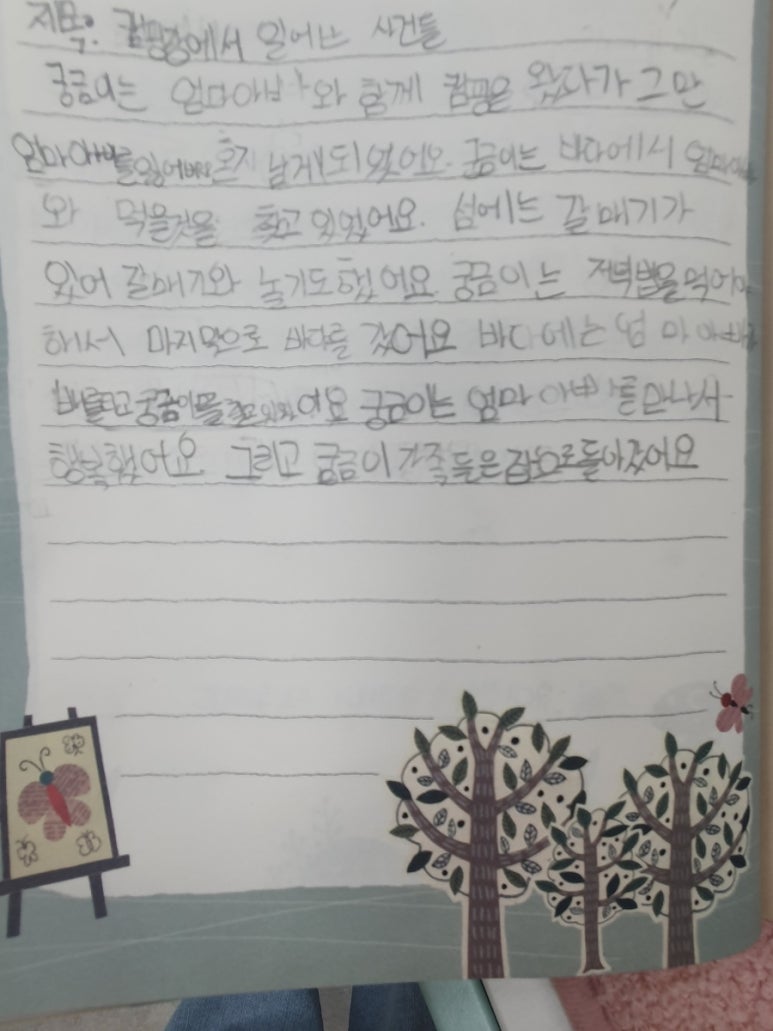 제목: 캠핑장에서 일어난 사건들
궁금이는 엄마아빠와 함께 캠핑을 왔다가 그만
엄마아빠를잃어버려 혼자 남게되었어요. 궁금이는 바다에서 엄마아빠
와 먹을것을 찾고있었어요. 섬에는 갈매기가
있어 갈매기와 놀기도했어요. 궁금이는 저녁밥을먹어야
해서 마지막으로 바다를 갔어요 바다에는 엄마아빠가
궁금이를 찾고있었어요 궁금이는 엄마아빠를만나서
행복했어요. 그리고 궁금이가족들은집으로돌아갔어요